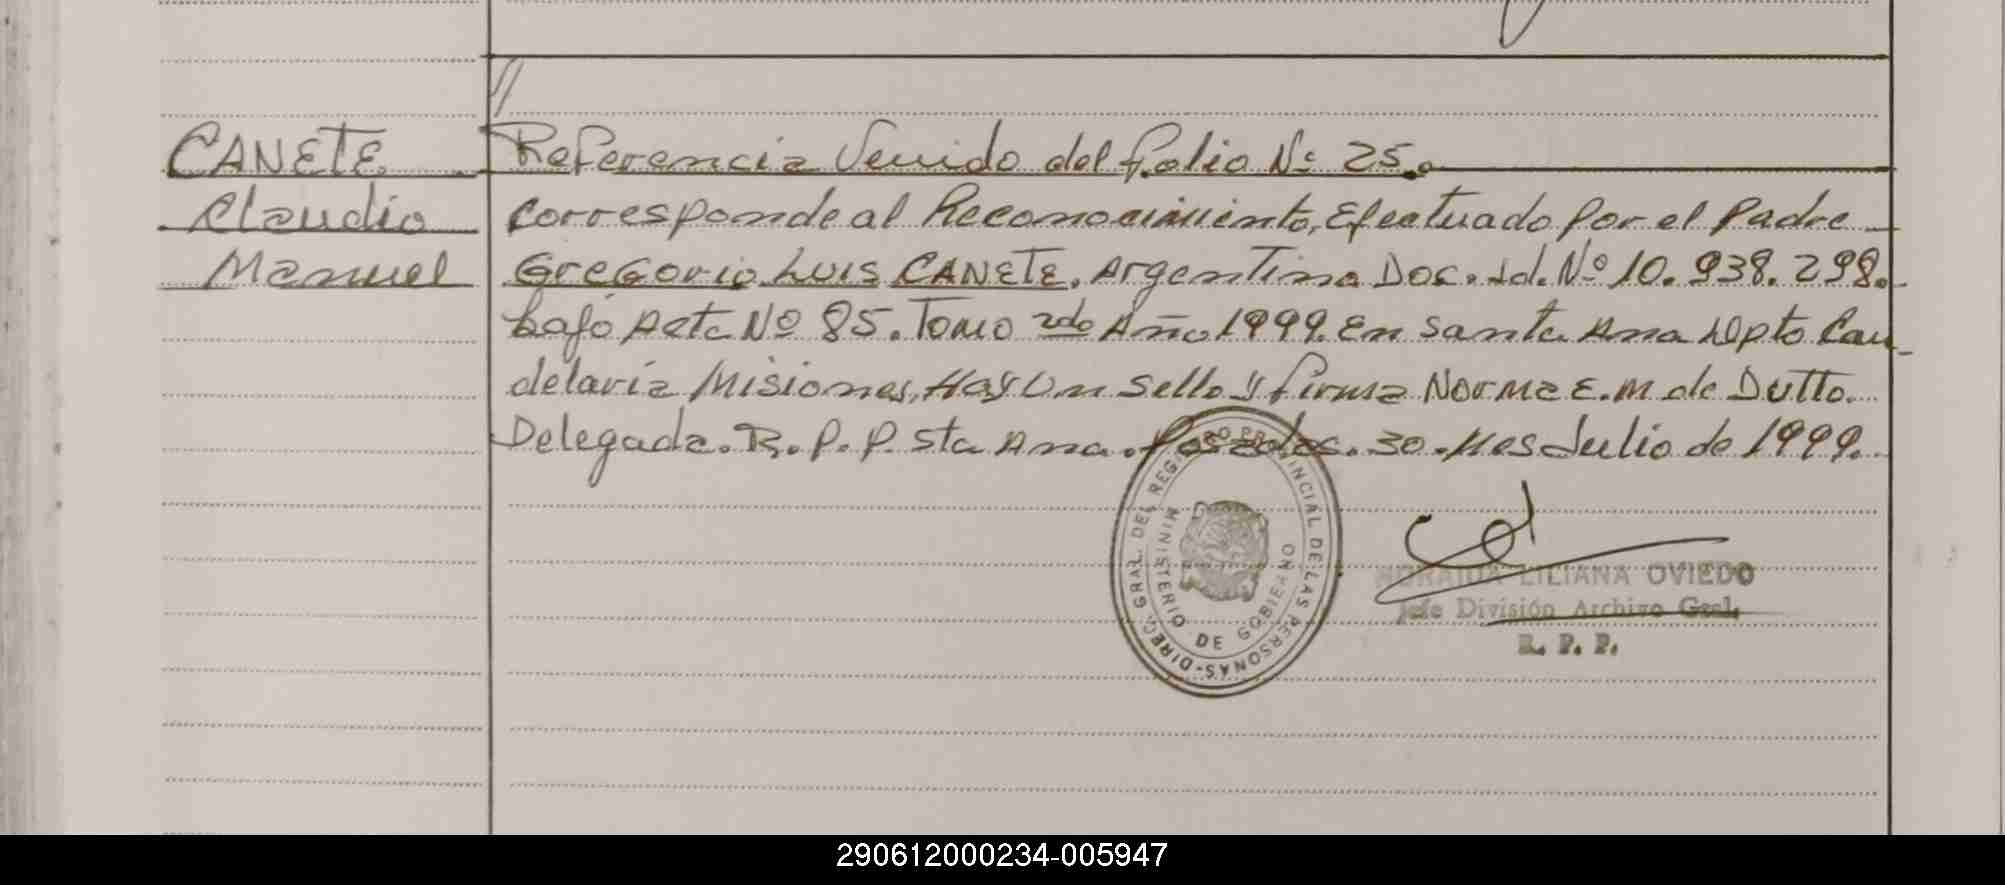 //
CANETE
Claudio
Manuel
Referencia Venido del folio Nº 25.
Corresponde al Reconocimiento, Efectuado por el Padre
GREGORIO LUIS CANETE, Argentino Doc. Id. Nº 10.938.298.
bajo Acta Nº 85. Tomo 2do Año 1999. En Santa Ana Dpto Can-
delaria Misiones, Hay Un Sello y firma Norma E. M de Dutto.
Delegada. R. P. P. Sta Ana. Posadas. 30. Mes Julio de 1999.
DIREC. GRAL. DEL REGISTRO PROVINCIAL DE LAS PERSONAS-
MINISTERIO DE GOBIERNO
LILIANA OVIEDO
Jefe División Archivo Gral.
R. P. P.
290612000234-005947